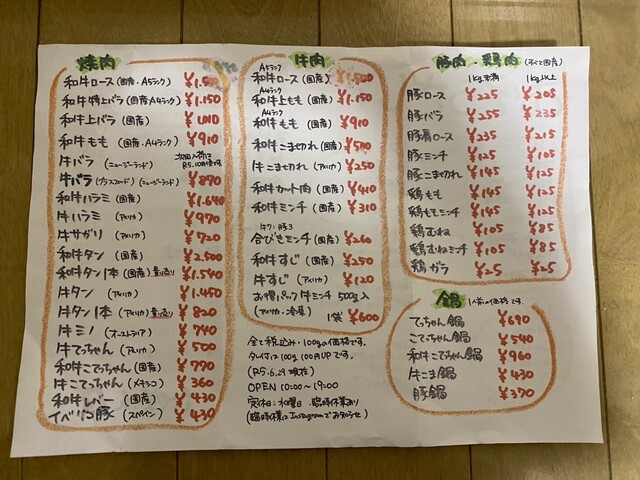 焼肉
和牛ロース (国産・A5ランク) ¥1.500
和牛特上バラ (国産A4ランク) ¥1.150
和牛上バラ (国産) ¥1.010
和牛もも (国産・A4ランク) ¥910
牛バラ (ニュージーランド) 次回入荷は R5.10月頃です
牛バラ (グラスフェッド) (ニュージーランド) ¥890
和牛ハラミ (国産) ¥1.640
牛ハラミ (アメリカ) ¥970
牛サガリ (アメリカ) ¥720
和牛タン (国産) ¥2.500
和牛タン1本 (国産) 量り売り ¥1.540
牛タン (アメリカ) ¥1.450
牛タン1本 (アメリカ) 量り売り ¥820
牛ミノ (オーストラリア) ¥740
牛てっちゃん (アメリカ) ¥500
和牛こてっちゃん (国産) ¥770
牛こてっちゃん (メキシコ) ¥360
和牛レバー (国産) ¥430
イベリコ豚 (スペイン) ¥430
牛肉
A5ランク
和牛ロース (国産) ¥1.500
A4ランク
和牛上もも (国産) ¥1.150
A4ランク
和牛もも (国産) ¥910
和牛こま切れ (国産) ¥500
牛こま切れ (アメリカ) ¥250
和牛カット肉 (国産) ¥410
和牛ミンチ (国産) ¥310
牛7:豚3
合びきミンチ (国産) ¥260
和牛すじ (国産) ¥250
牛すじ (アメリカ) ¥120
お得パック牛ミンチ 500g入
(アメリカ・冷凍) 1袋 ¥600
全て税込み・100gの価格です。
タレ付は100g 100円UPです。
(R5.6.29 現在)
OPEN 10:00~19:00
定休日:水曜日・臨時休業あり
(臨時休業はInstagramでお知らせ)
豚肉・鶏肉 (すべて国産)
1kg未満 1kg以上
豚ロース ¥225 ¥205
豚バラ ¥255 ¥235
豚肩ロース ¥235 ¥215
豚ミンチ ¥125 ¥105
豚こま切れ ¥145 ¥125
鶏もも ¥145 ¥125
鶏ももミンチ ¥145 ¥125
鶏むね ¥105 ¥85
鶏むねミンチ ¥105 ¥85
鶏ガラ ¥25 ¥25
鍋 1人前の価格です。
てっちゃん鍋 ¥690
こてっちゃん鍋 ¥540
和牛こてっちゃん鍋 ¥960
牛こま鍋 ¥430
豚鍋 ¥370